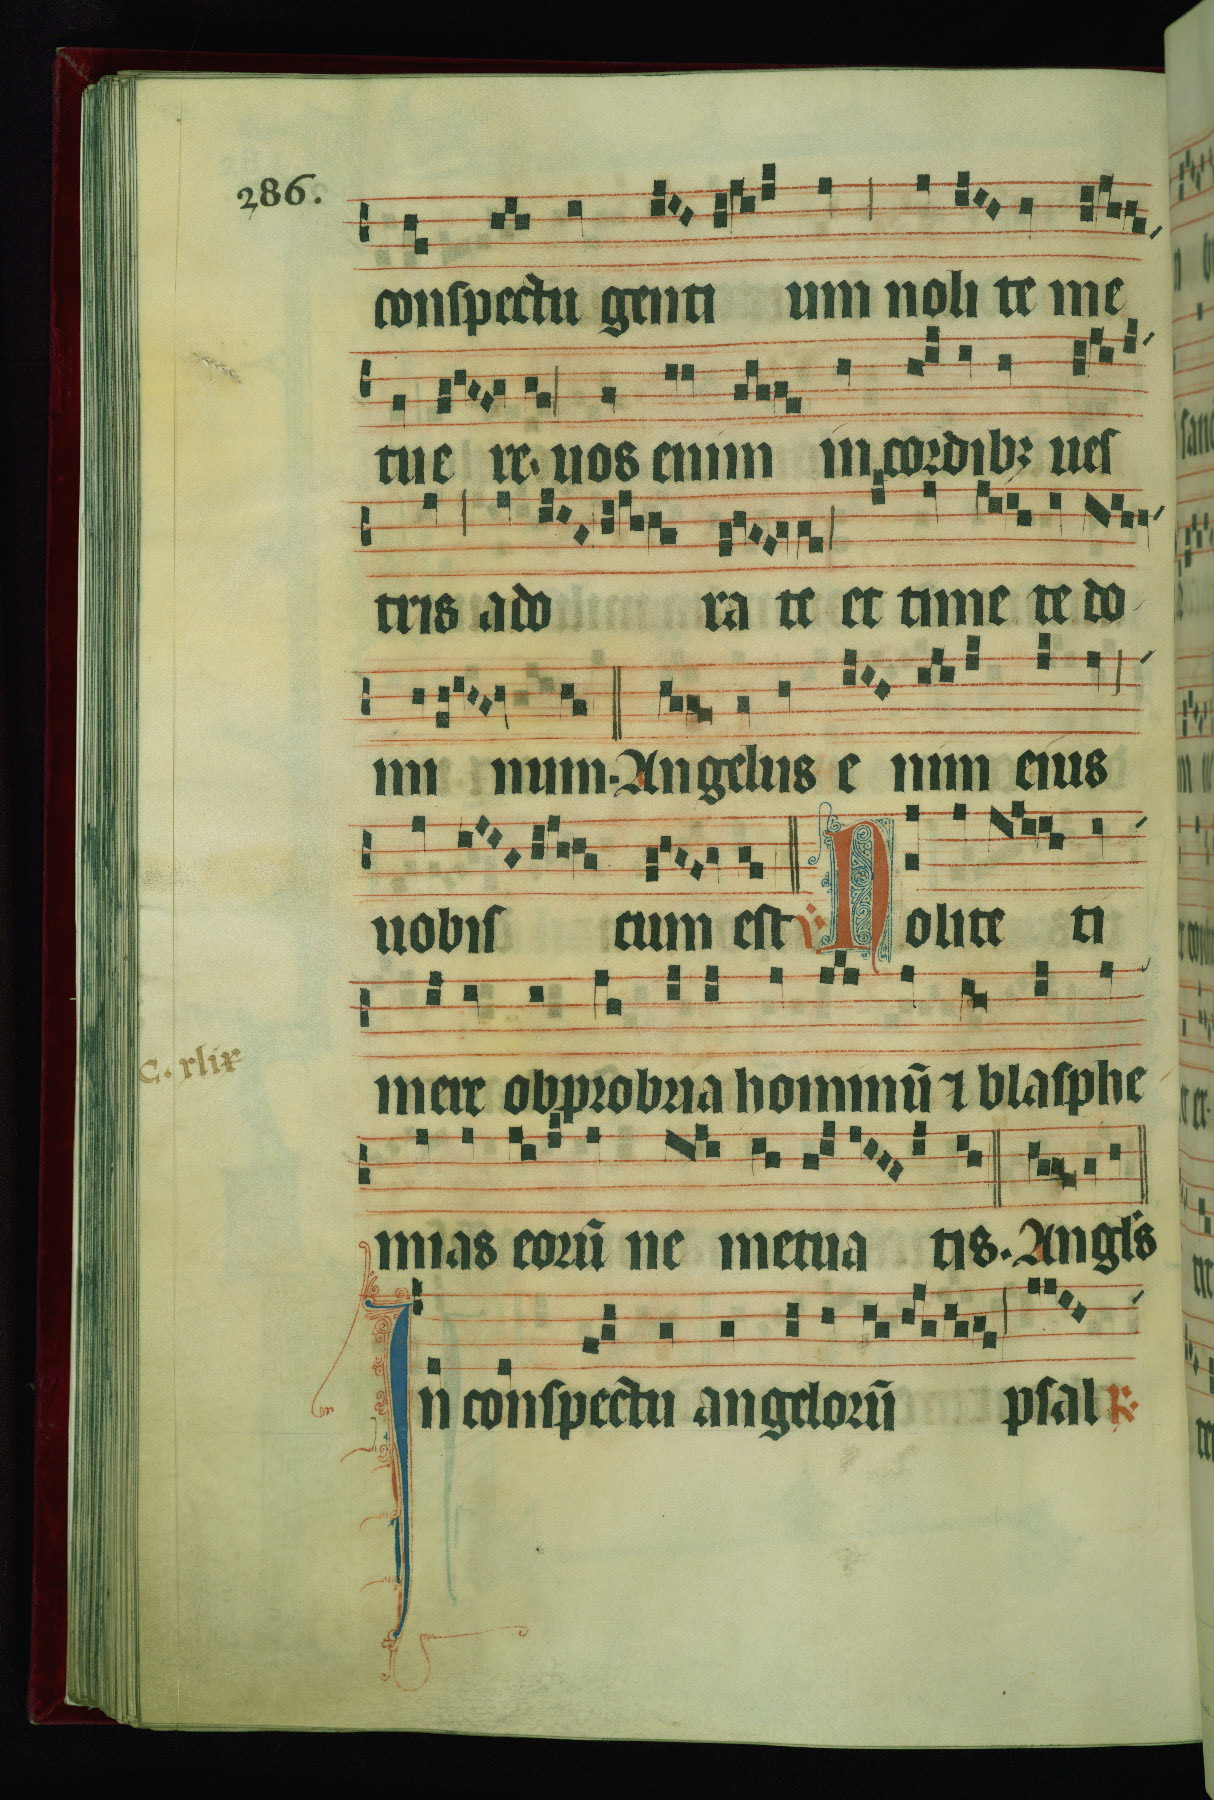 286.
conspectu genti um noli te me
tue re. uos enim in cordibꝫ ues
tris ado ra te et time te do
mi num. Angelus e nim eius
uobis cum est ℣ Nolite ti
mere obprobria hominū ⁊ blasphe
C. xlix
mias eorū ne metua tis. Angl's
In conspectu angelorū psal ℟.